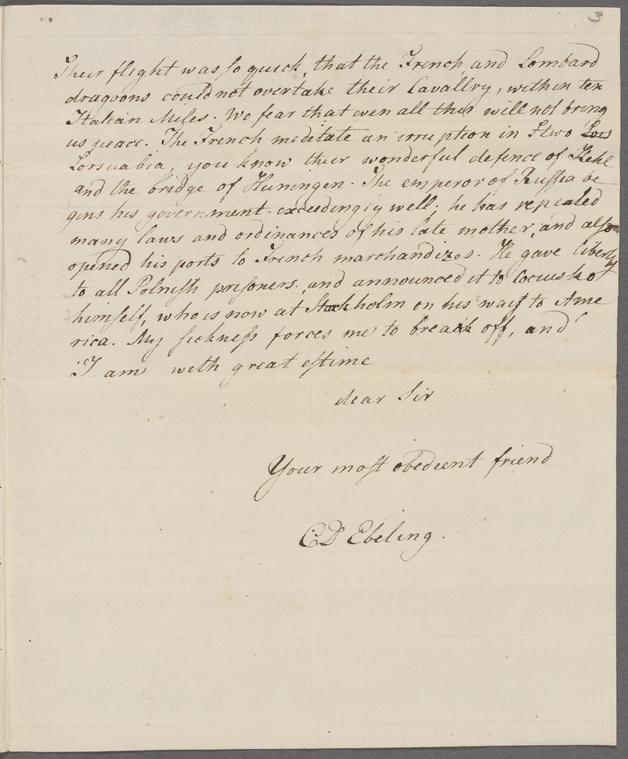 3
Their flight was so quick, that the French and Lombard
dragoons could not overtake their Cavallry, within ten
Italian Miles. We fear that even all this will not bring
us peace. The French meditate an irruption in
you know their wonderful defence of Kehl
and the bridge of Huningen. The emperor of Russia be
gins his government exceedingly well; he has repealed
many laws and ordinances of his late mother, and also
opened his ports to French marchandizes. He gave liberty
to all Polnish prisoners, and announced it to Cociusko
himself, who is now at Stockholm on his way to Ame
rica. My sickness forces me to break off, and
I am with great estime
dear Sir
Your most obedient friend
CD Ebeling.